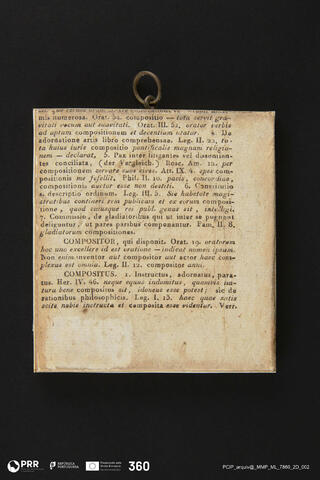 mis numerosa. Orat. 54. compositio — tota servit gra-
vitati vocum aut suavitati. Orat. III. 52, orator verbis
ad aptam compositionem et decentiam utatur. 4. De
adornatione artis libro comprehensa. Leg. II. 22, to-
ta huius iuris compositio pontificalis magnam religio-
nem — declarat, 5. Pax inter litigantes vel dissentien-
tes conciliata, (der Vergleich.) Rosc. Am. 12. per
compositionem servare suos cives. Att. IX. 4. spes com-
positionis me fefellit, Phil. II. 10. pacis, concordiae,
compositionis auctor esse non destiti. 6. Constitutio
s. descriptio ordinum. Leg. III. 5. Sic habetote magi-
stratibus contineri rem publicam et ex eorum composi-
tione, quod cuiusque rei publ. genus sit, intelligi.
7. Commissio, de gladiatoribus qui ut inter se pugnent
deliguntur, ut pares paribus componantur. Fam. II. 8,
gladiatorum compositiones.
COMPOSITOR, qui disponit. Orat. 19. oratorem
hoc uno excellere id est oratione — indicat nomen ipsum.
Non enim inventor aut compositor aut actor haec com-
plexus est omnia. Leg. II. 12. compositor anni.
COMPOSITUS. 1. Instructus, adornatus, para-
tus. Her. IV. 46. neque equus indomitus, quamvis na-
tura bene compositus sit, idoneus esse potest; sic de
rationibus philosophicis. Leg. I. 13. haec quae satis
scite nobis instructa et composita esse videntur. Verr.
PRR
REPÚBLICA
PORTUGUESA
360
PCIP_arquiv@_MMP_ML_7860_2D_002